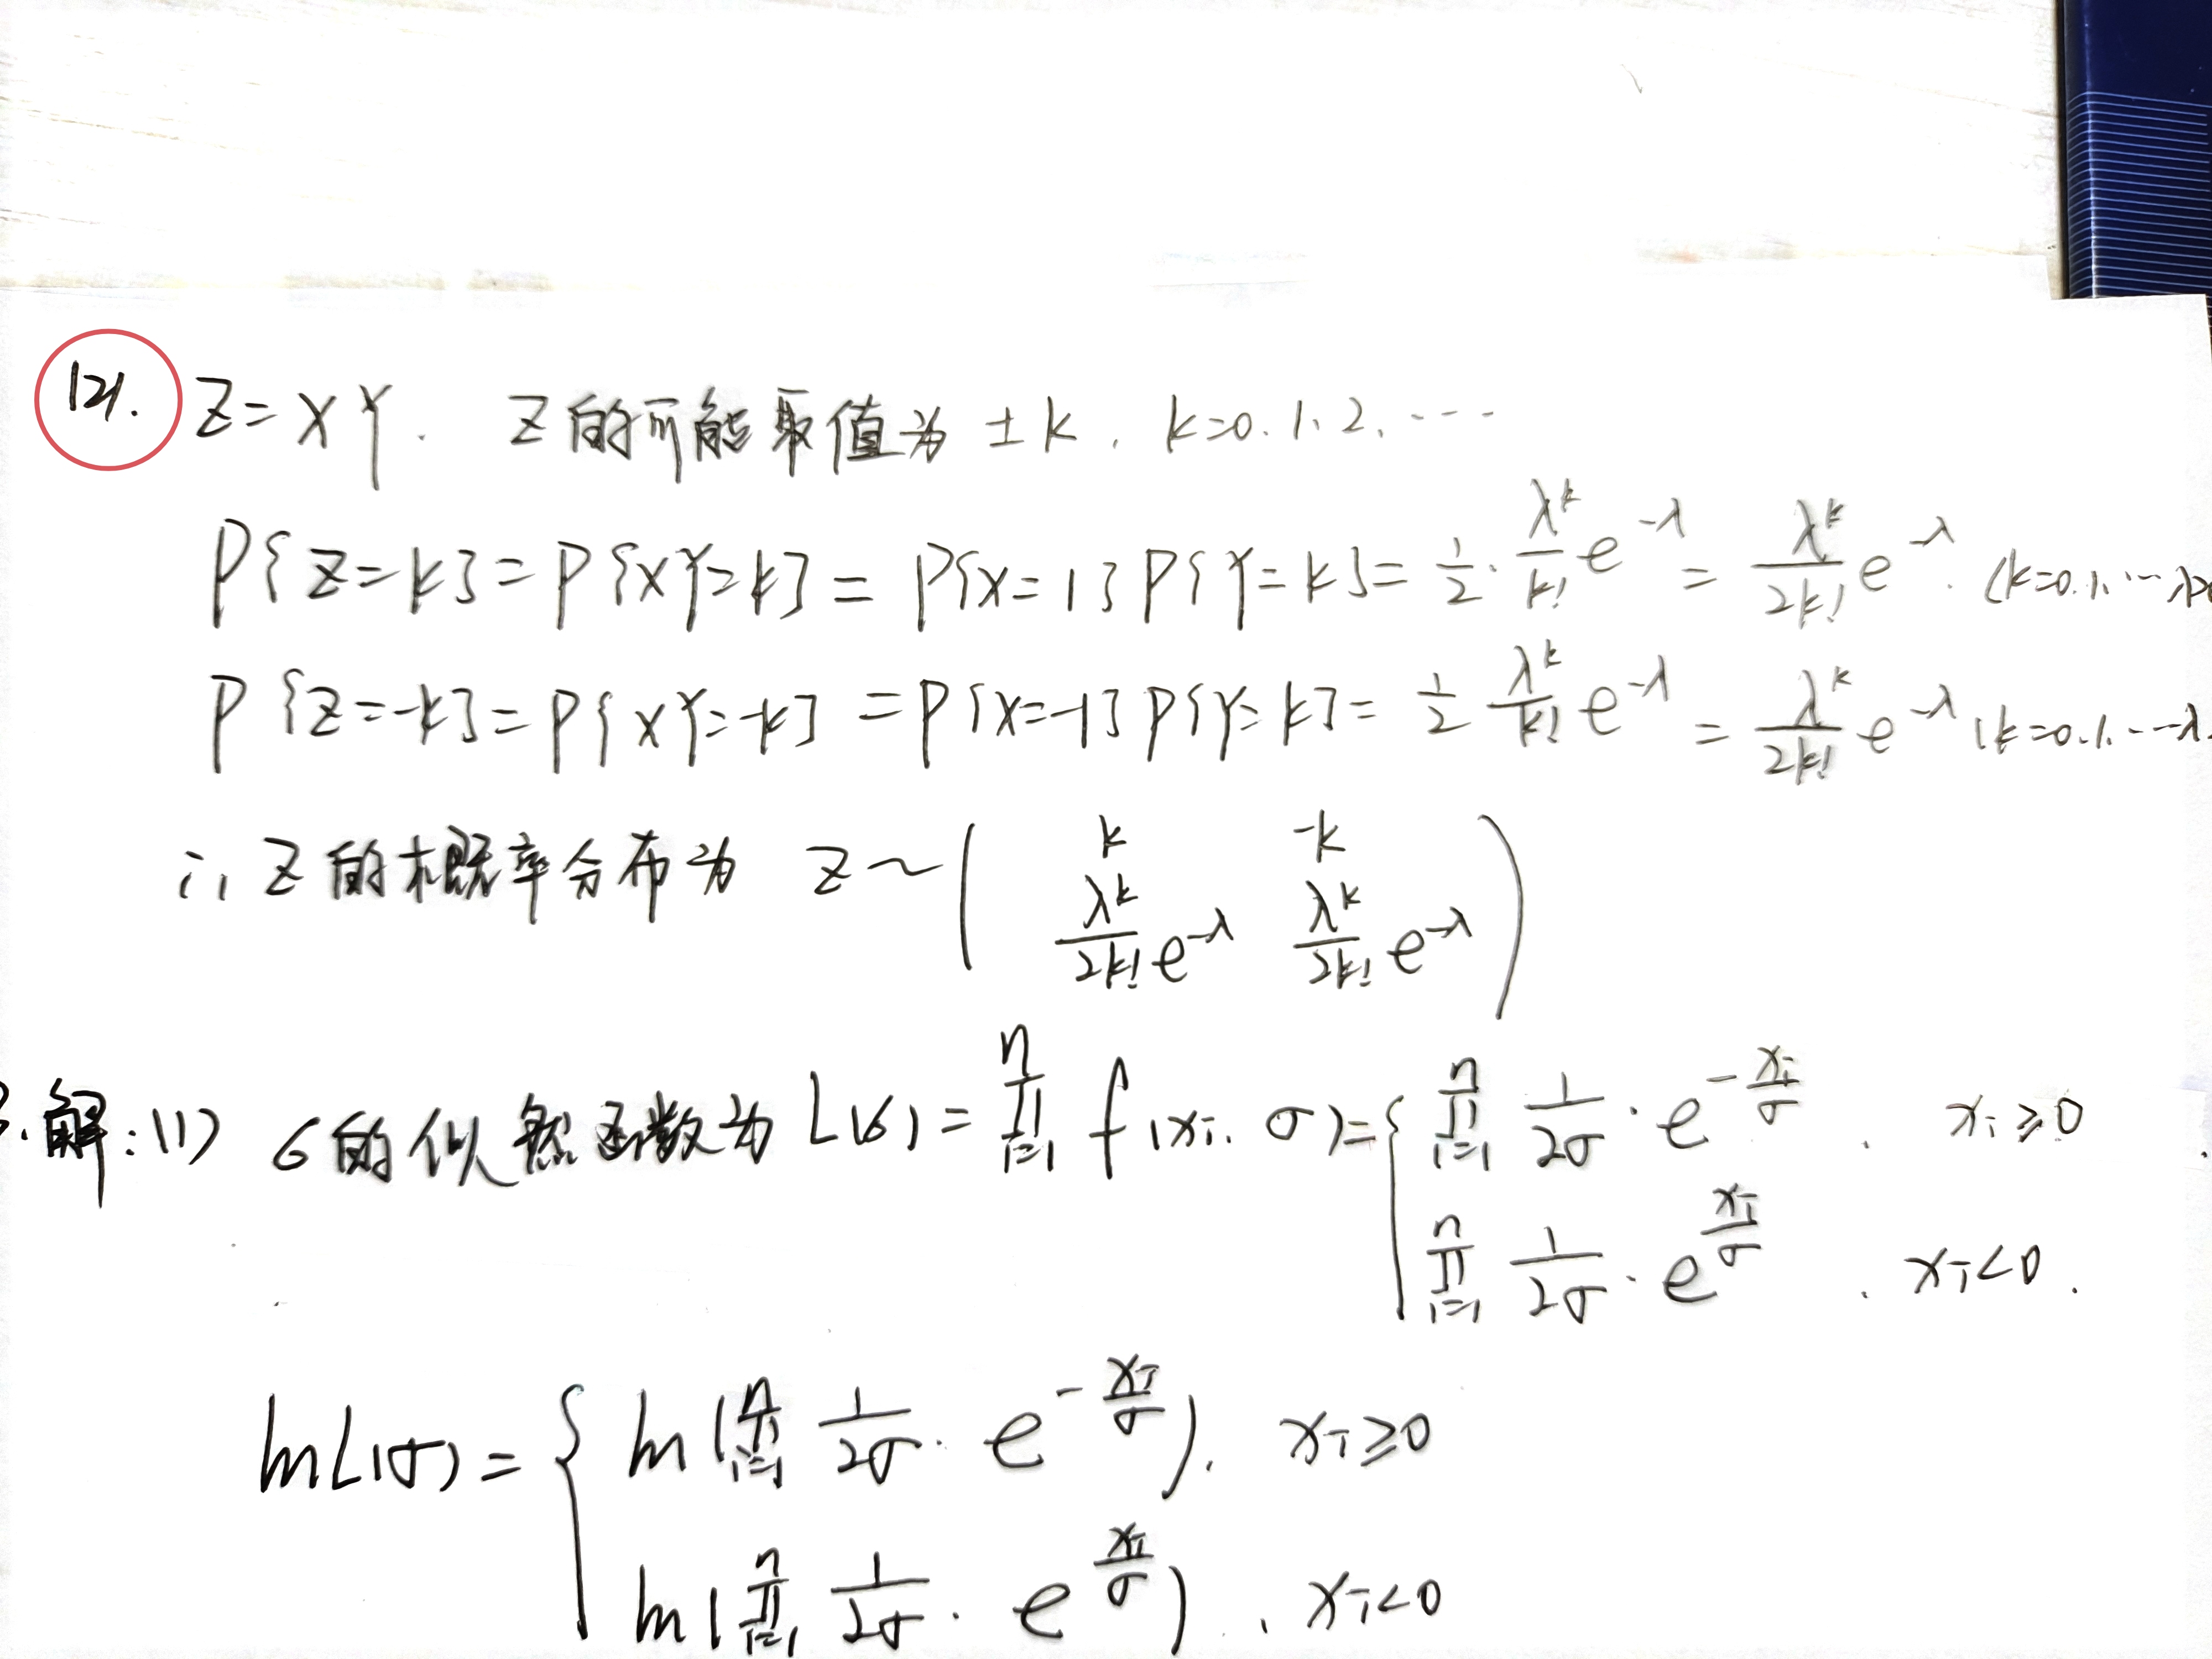 (2). Z=XY. Z的可能取值为 ±k, k=0.1.2.…
P{Z=k}=P{XY=k}=P{X=1}P{Y=k}=\frac{1}{2}·\frac{λ^k}{k!}e^{-λ}=\frac{λ^k}{2k!}e^{-λ}. (k=0.1.…λ>
P{Z=-k}=P{XY=-k}=P{X=-1}P{Y=k}=\frac{1}{2}\frac{λ^k}{k!}e^{-λ}=\frac{λ^k}{2k!}e^{-λ} (k=0.1.…λ
∴ Z的概率分布为 Z~\begin{pmatrix} k & -k \\ \frac{λ^k}{2k!}e^{-λ} & \frac{λ^k}{2k!}e^{-λ} \end{pmatrix}
.解:(1) σ的似然函数为L(σ)=\prod_{i=1}^{n} f(x_i.σ)=\begin{cases} \prod_{i=1}^{n} \frac{1}{2σ}·e^{-\frac{x_i}{σ}}. & x_i≥0 \\ \prod_{i=1}^{n} \frac{1}{2σ}·e^{\frac{x_i}{σ}}. & x_i<0. \end{cases}
lnL(σ)=\begin{cases} ln(\prod_{i=1}^{n} \frac{1}{2σ}·e^{-\frac{x_i}{σ}}). & x_i≥0 \\ ln(\prod_{i=1}^{n} \frac{1}{2σ}·e^{\frac{x_i}{σ}}). & x_i<0 \end{cases}